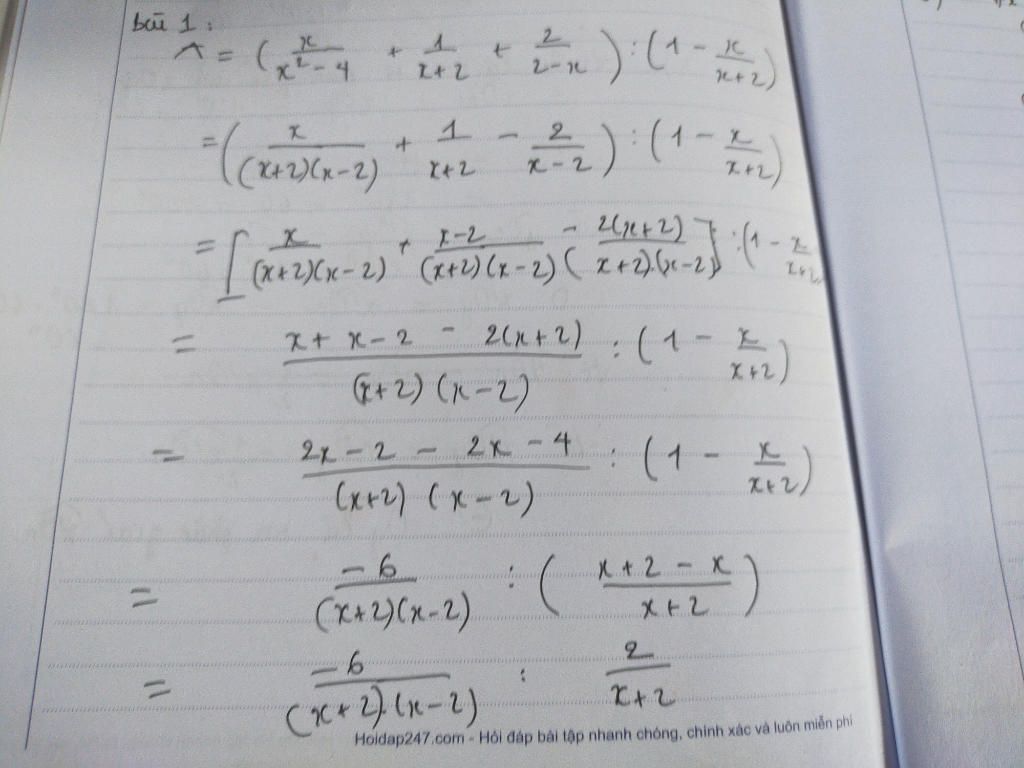 bài 1:
A = ( x/(x² - 4) + 1/(x+2) + 2/(2-x) ) : ( 1 - x/(x+2) )
= ( x/((x+2)(x-2)) + 1/(x+2) - 2/(x-2) ) : ( 1 - x/(x+2) )
= [ x/((x+2)(x-2)) + (x-2)/((x+2)(x-2)) - 2(x+2)/((x+2).(x-2)) ] : ( 1 - x/(x+2)
= (x + x - 2 - 2(x+2))/((x+2)(x-2)) : ( 1 - x/(x+2) )
= (2x - 2 - 2x - 4)/((x+2)(x-2)) : ( 1 - x/(x+2) )
= -6/((x+2)(x-2)) : ( (x+2-x)/(x+2) )
= -6/((x+2).(x-2)) : 2/(x+2)
Hoidap247.com - Hỏi đáp bài tập nhanh chóng, chính xác và luôn miễn phí